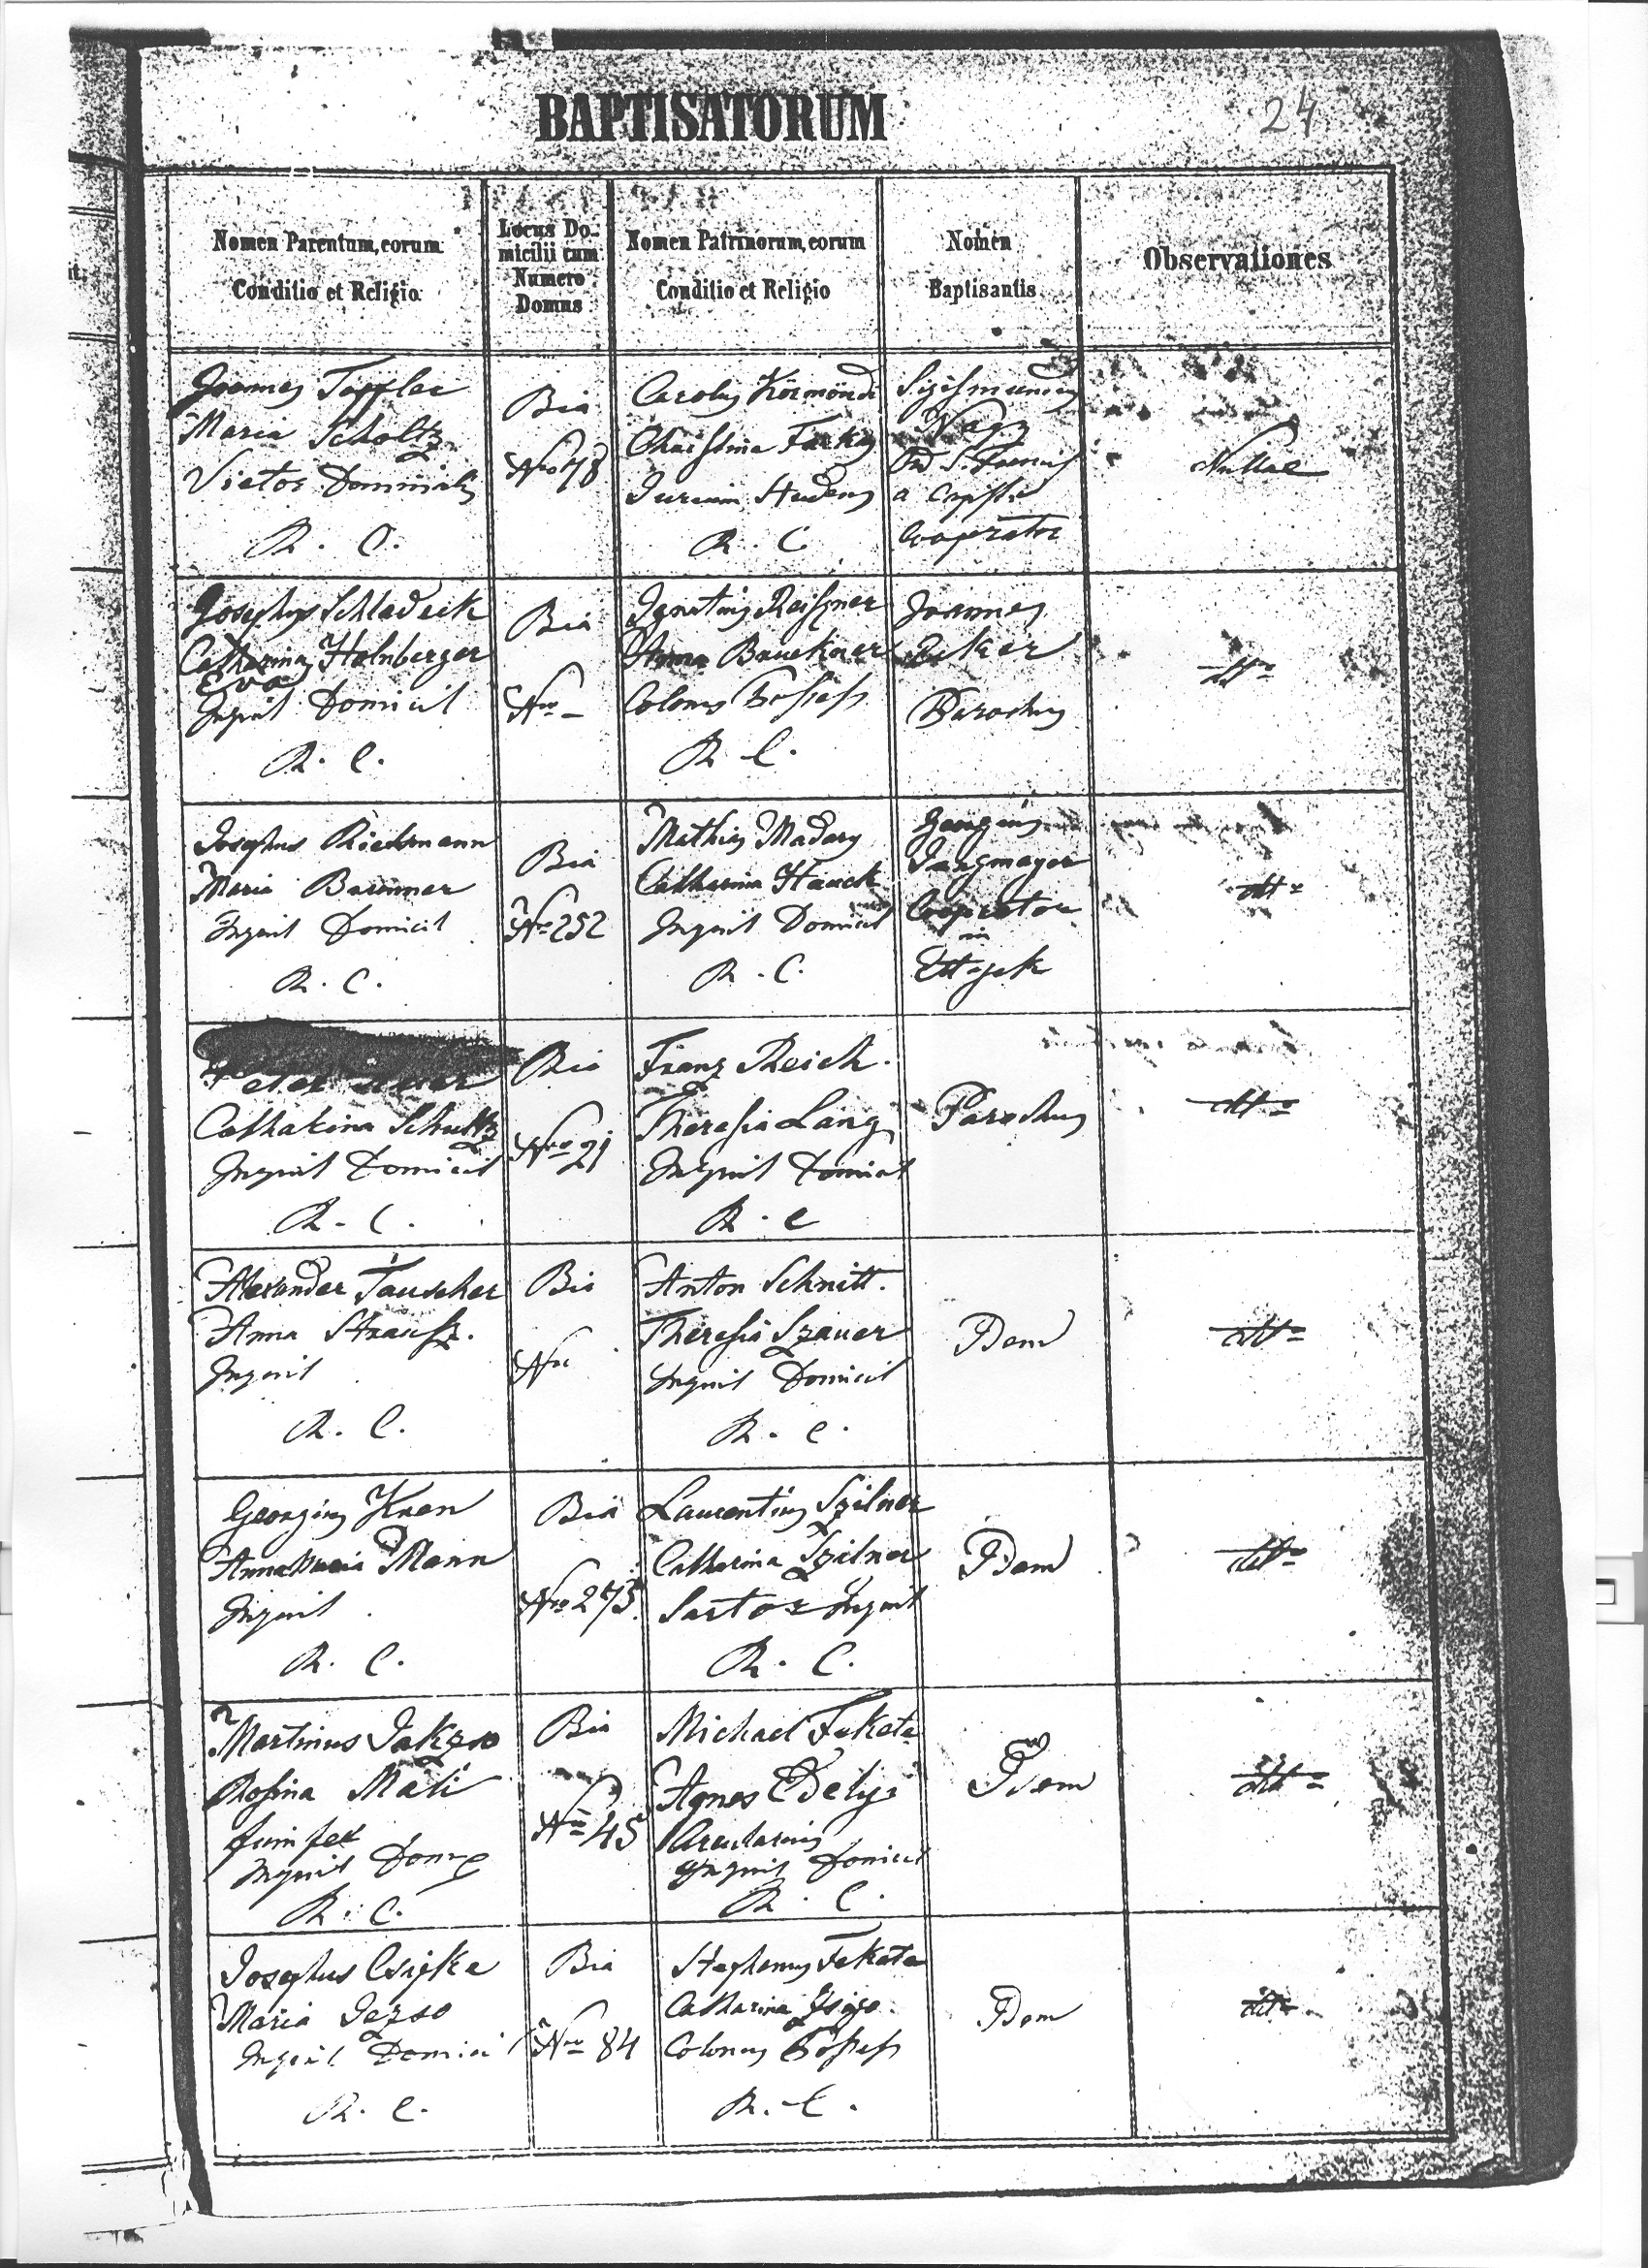 BAPTISATORUM
24
Nomen Parentum, eorum
Conditio et Religio
Locus Do-
micilii cum
Numero
Domus
Nomen Patrinorum, eorum
Conditio et Religio
Nomen
Baptisantis
Observationes
Joannes Taffler
Maria Scholtz
Victor Domicil
R. C.
Bia
Nro 78
Carolus Körmöndi
Christina Farkas
R. C.
Sigismundus
Nagy
Ord S. Francis
a Capistr
Cooperator
Nullae
Josephus Schladeck
Catharina Holnberger
Eva
Inquil Domicil
R. C.
Bia
Nro -
Ignatius Reiszner
Anna Bauckner
Colonus Possess
R. C.
Joannes
Ecker
Parochus
dtto
Josephus Riedmann
Maria Brunner
Inquil Domicil
R. C.
Bia
Nro 252
Mathias Madary
Catharina Hauck
Inquil Domicil
R. C.
Jangmayer
Cooperator
in
Ettyek
dtto
Peter
Catharina Schultz
Inquil Domicil
R. C.
Bia
Nro 21
Franz Reich
Theresia Lang
Inquil Domicil
R. C
Parochus
dtto
Alexander Tauscher
Anna Strausz.
Inquil
R. C.
Bia
Nro
Anton Schnitt.
Theresia Szauer
Inquil Domicil
R. C.
Idem
dtto
Georgius Kren
Anna Maria Mann
Inquil
R. C.
Bia
Nro 273.
Laurentius Szilner
Catharina Szilner
Sartor Inquil
R. C.
Idem
dtto
Martinus Jakzso
Rosina Mali
Inquil Dom
R. C.
Bia
Nro 45
Michael Fekete
Agnes Edelyi
Arcularius
Inquil Domicil
R. C.
Idem
dtto
Josephus Csipke
Maria Jezso
Inquil Domici
R. C.
Bia
Nro 84
Stephanus Fekete
Catharina
Colonus Possess
R. C.
Idem
dtto